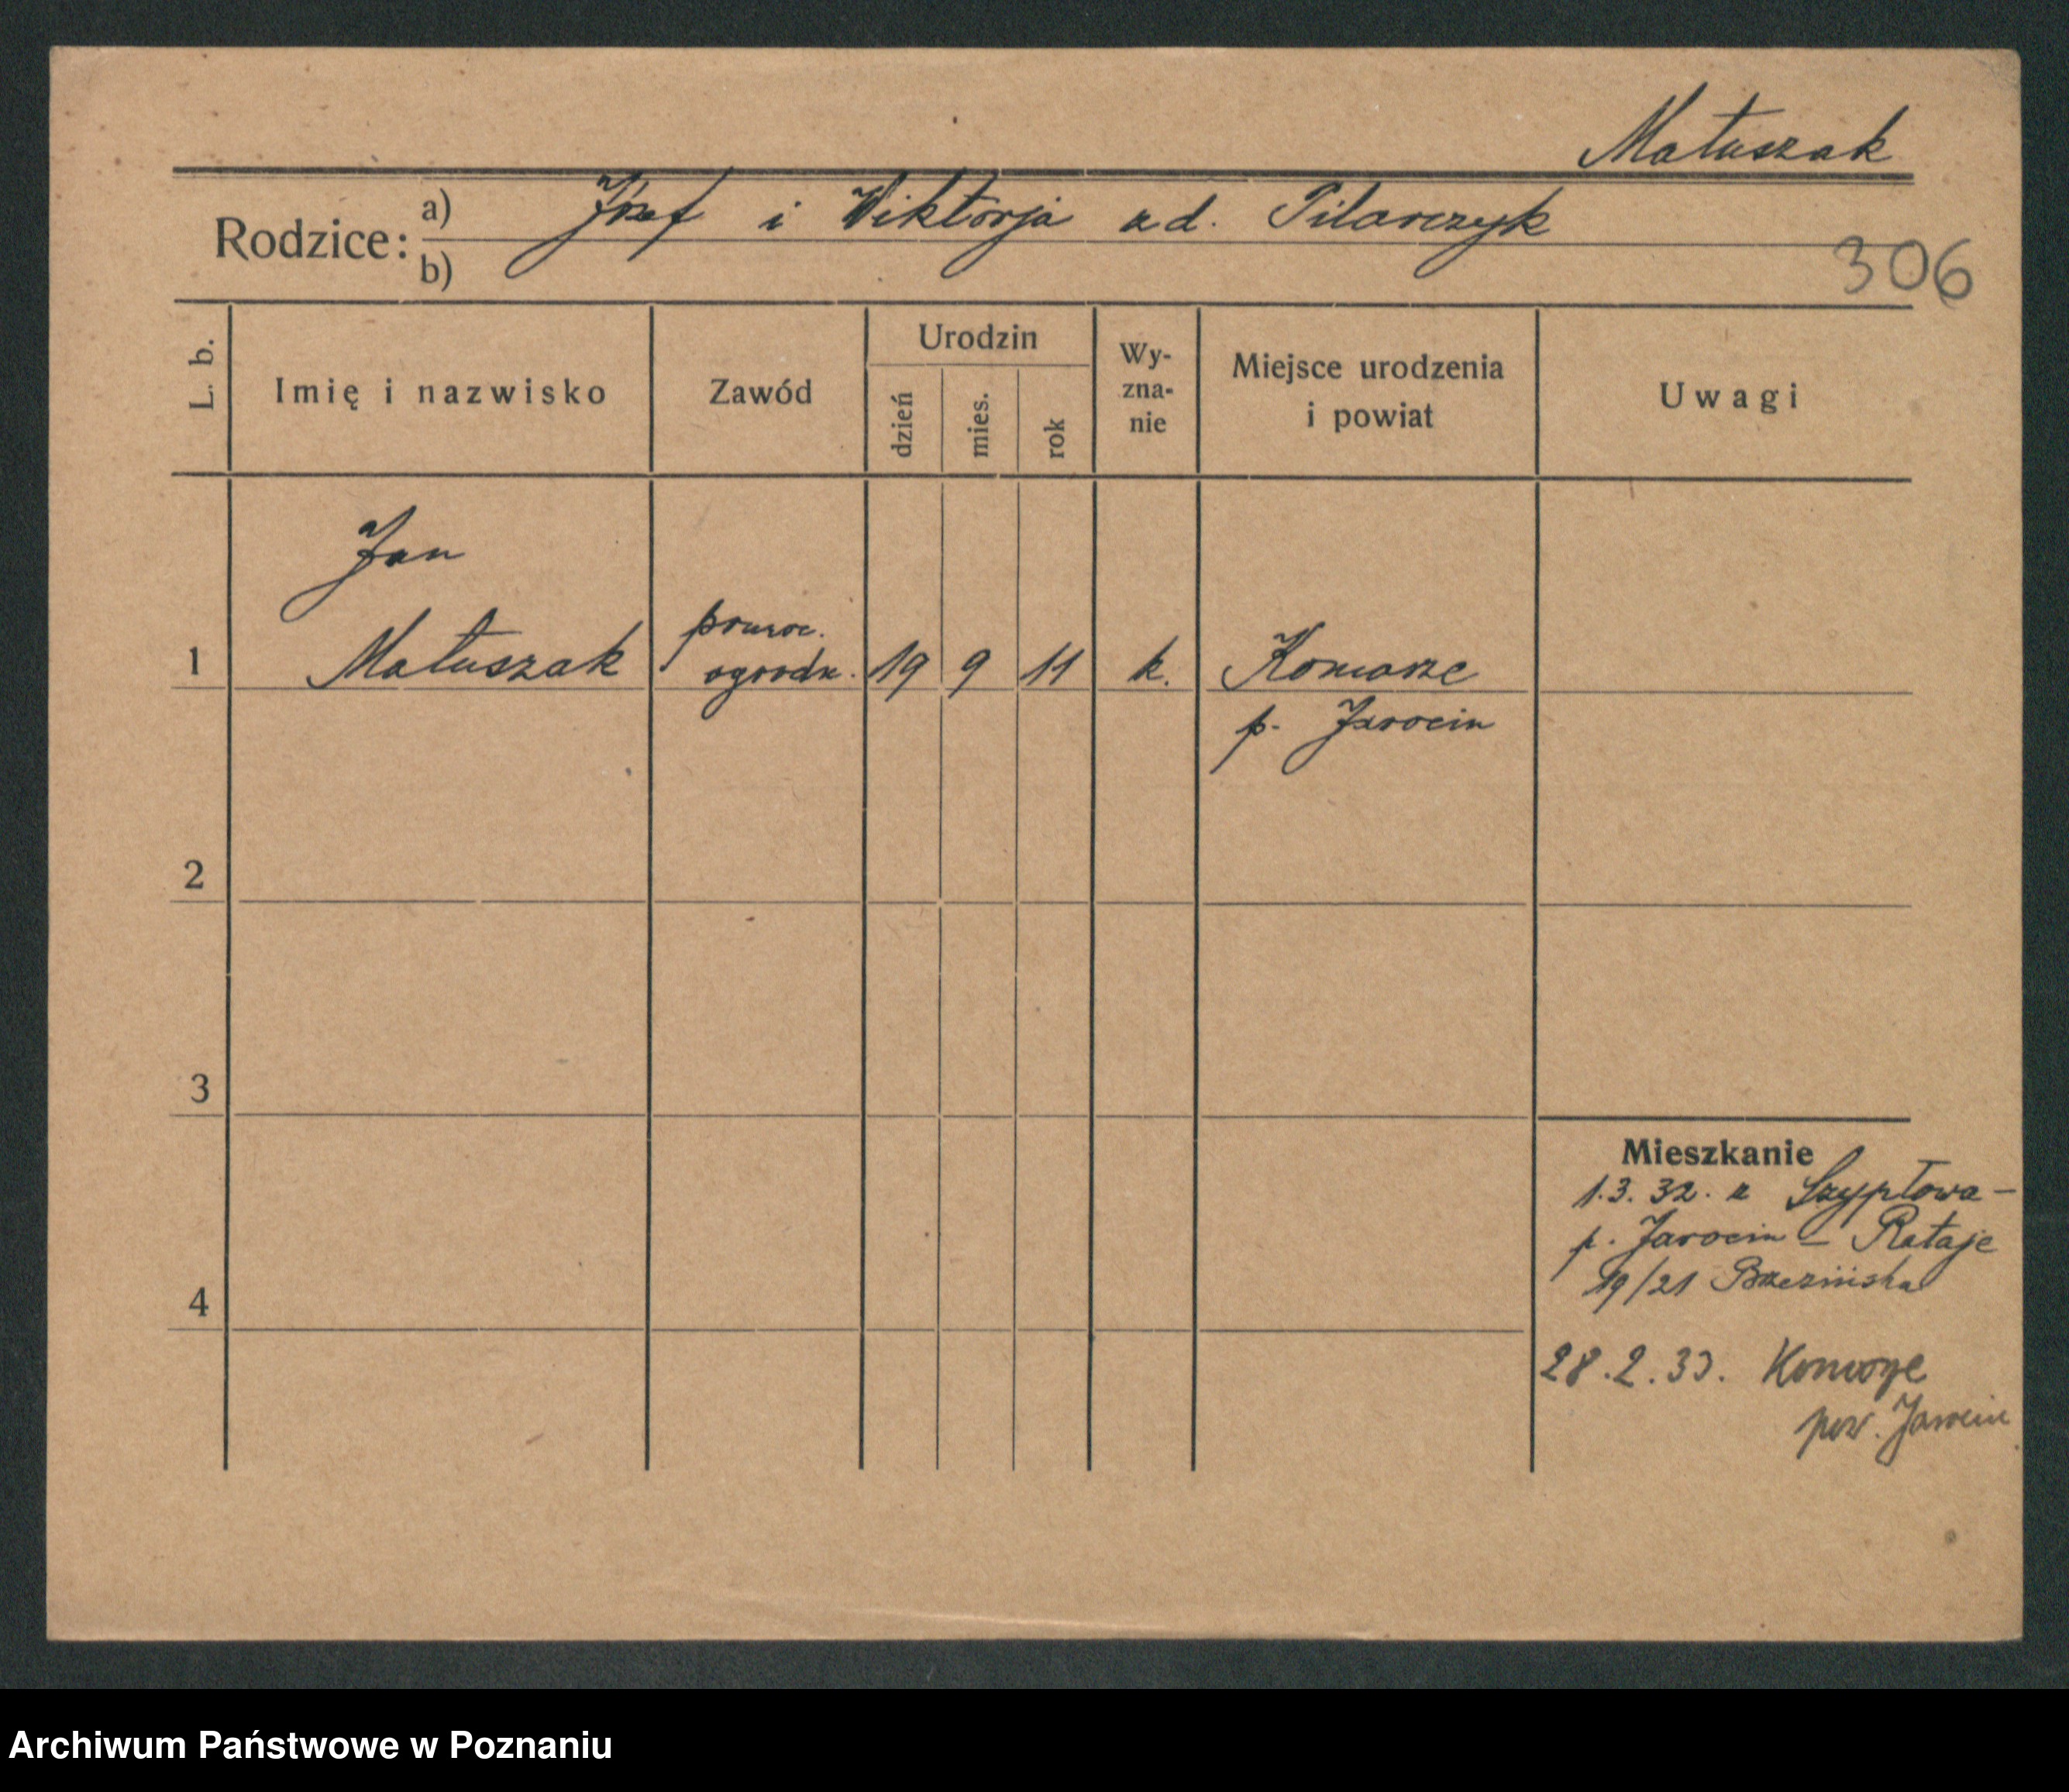 Matuszak
Rodzice: a) Józef i Wiktorja zd. Pilarczyk
b)
306
L. b.
Imię i nazwisko
Zawód
Urodzin
dzień
mies.
rok
Wy-
zna-
nie
Miejsce urodzenia
i powiat
Uwagi
Jan
1 Matuszak
pomoc.
ogrodn.
19 9 11 k. Komorze
p. Jarocin
2
3
4
Mieszkanie
1.3.32. z Szypłowa -
p. Jarocin - Rataje
19/21 Brzezińska
28.2.33. Komorze
pow. Jarocin
Archiwum Państwowe w Poznaniu